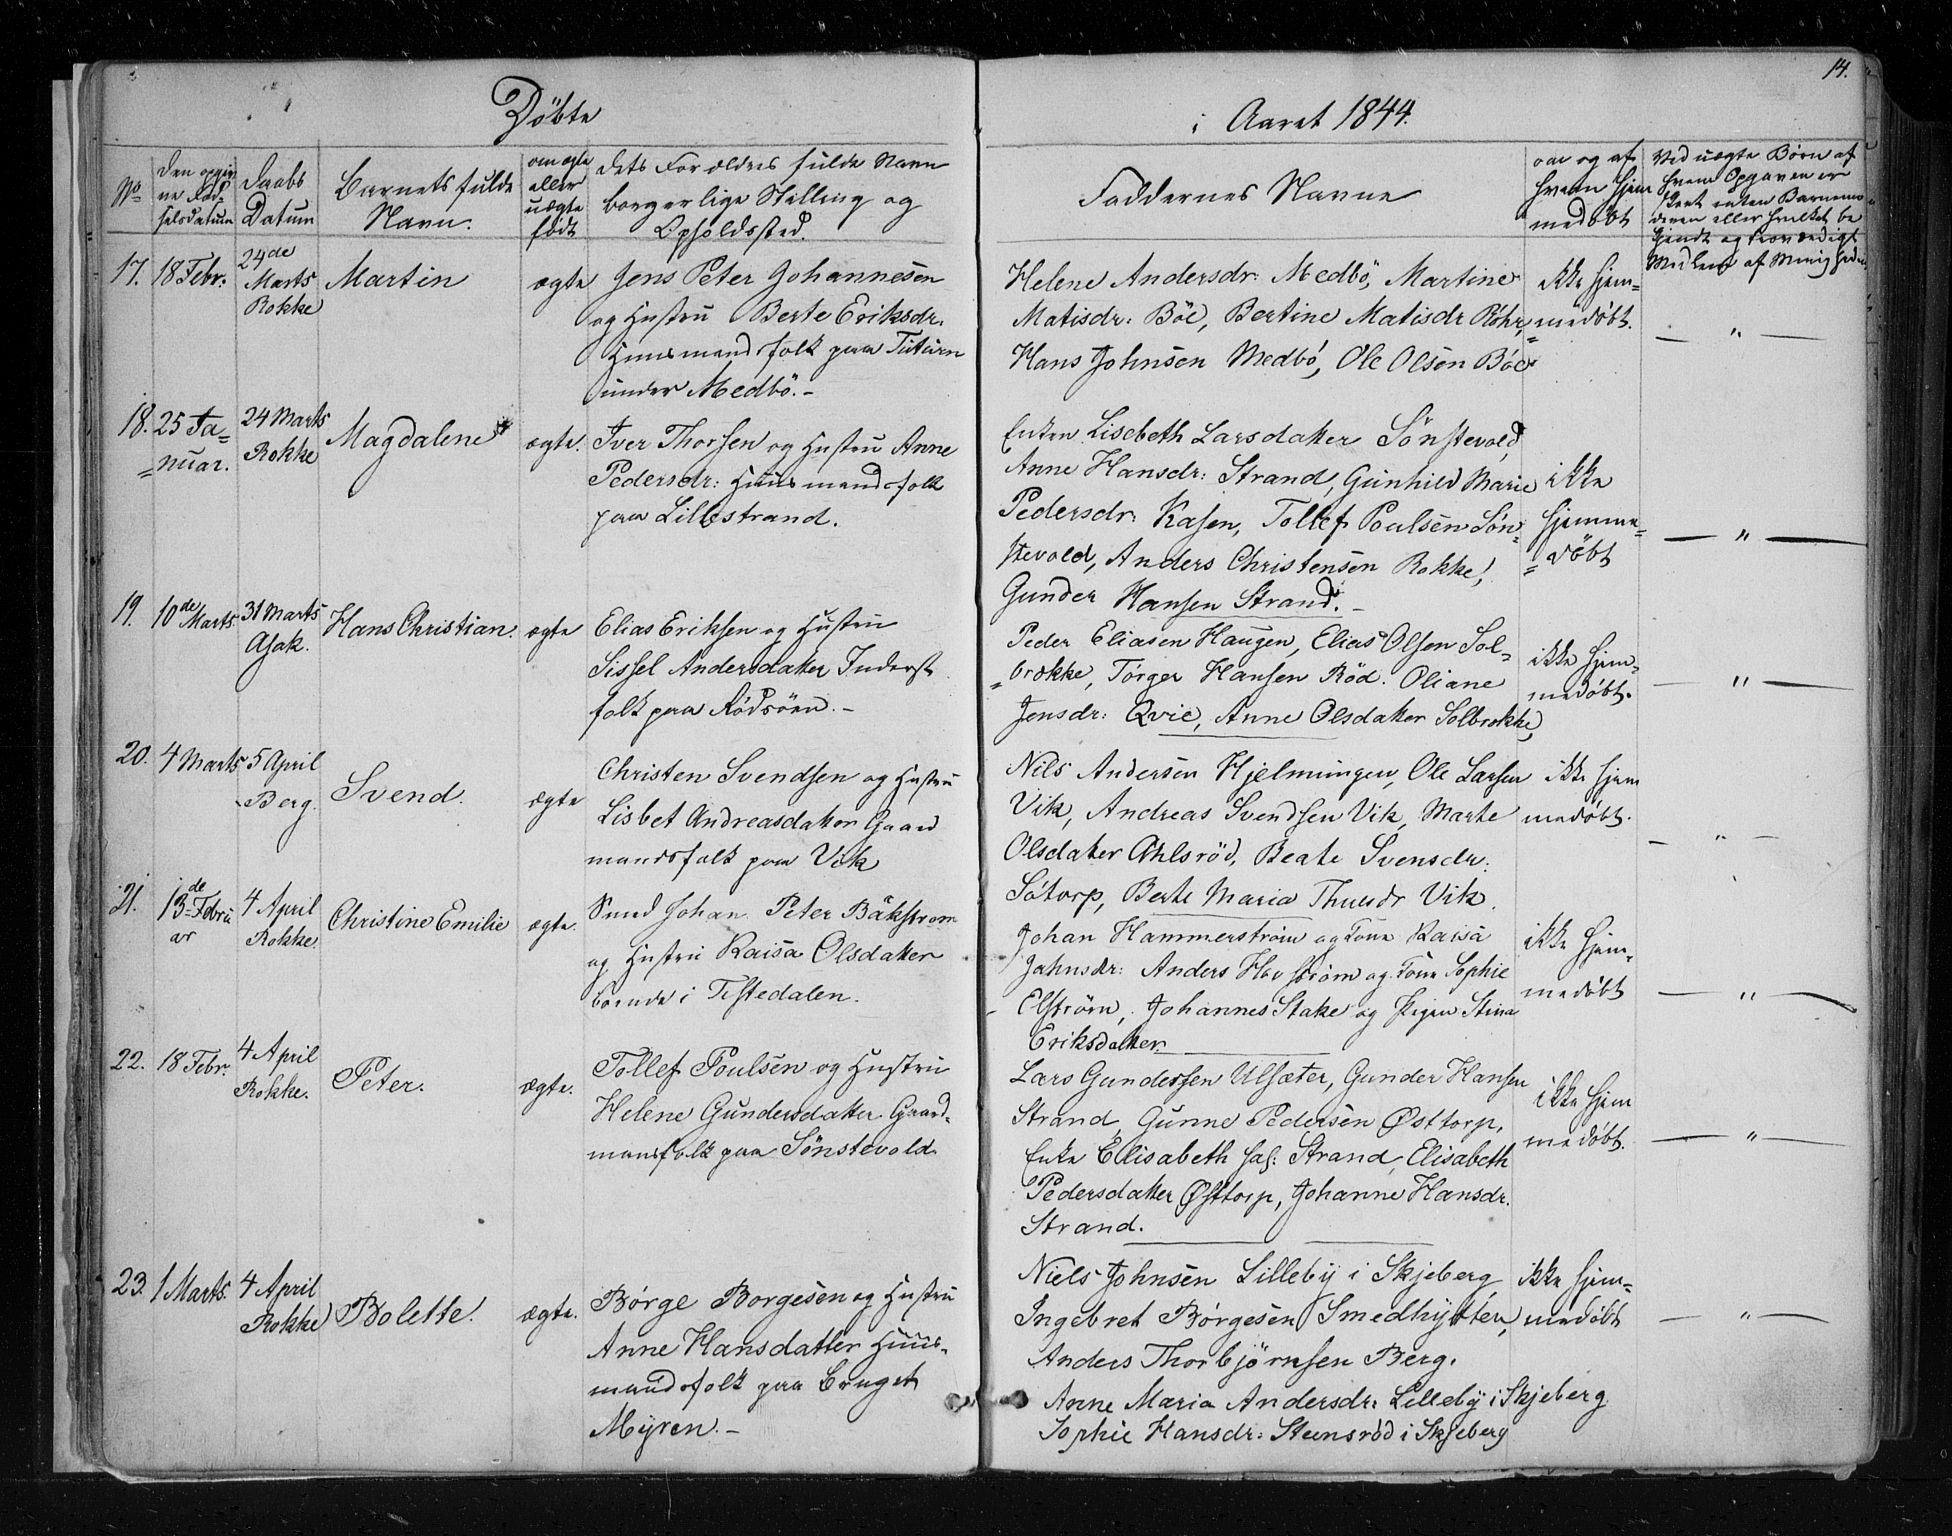 14.
Döbte
i Aaret 1844.
No
Den opgiv
ne Föd=
selsdatum
Daabs
Datum
Barnets fulde
Navn.
om ægte
eller
uægte
født
Dets Forældres fulde Navn
borgerlige Stilling og
Opholdssted.
Faddernes Navne
om og af
hvem hjem
medøbt
Ved uægte Børn af
hvem Opgaven er
skeet enten Barnemo
deren eller hvilket be
kjendt og troværdigt
Medlem af Menigheden
17. 18 Febr.
24de
Marts
Rokke
Martin
ægte
Jens Peter Johannesen
og Hustru Berte Eriksdr.
Huusmandsfolk paa
under Medbö.-
Helene Andersdr: Medbö, Martine
Matisdr: Böe, Bertine Matisdr Röhr,
Hans Johnsen Medbö, Ole Olsen Böe
ikke hjem=
=medøbt.
— " —
18. 25 Ja=
=nuar.
24 Marts
Rokke
Magdalene
ægte.
Iver Thorsen og Hustru Anne
Pedersdr: Huusmandsfolk
paa Lillestrand.
Enken Lisebeth Larsdatter Sönstevold,
Anne Hansdr: Strand, Gunhild Marie
Pedersdr: Kasen, Tollef Poulsen Sön=
stevold, Anders Christensen Rokke,
Gunder Hansen Strand.-
ikke
hjemme=
=döbt
— " —
19. 10de Marts.
31 Marts
Asak.
Hans Christian.
ægte
Elias Eriksen og Hustru
Sissel Andersdatter Inderst
folk paa Rödsöen.-
Peder Eliasen Haugen, Elias Olsen Sol=
=brække, Törger Hansen Röd. Oliane
Jensdr: Qvie, Anne Olsdatter Solbrække,
ikke hjem=
medøbt.
— " —
20. 4 Marts
5 April
Berg.
Svend.
ægte
Christen Svendsen og Hustru
Lisbet Andreasdatter Gaard
mandsfolk paa Vik
Nils Andersen Hjelmungen, Ole Larsen
Vik, Andreas Svendsen Vik, Marte
Olsdatter Ahlsröd, Beate Svensdr:
Sötorp, Berte Maria Thuesdr Vik.
ikke hjem
medøbt.
— " —
21. 13de Febru
ar
4 April
Rokke.
Christine Emilie
ægte.
Smed Johan Peter Bäkstrom
og Hustru Kaisa Olsdatter
boende i Tistedalen.
Johan Hammerström og Kone Kaisa
Jahnsdr: Anders Ho ström og Kone Sophie
Elström, Johannes Stake og Pigen Stina
Eriksdatter.
ikke hjem=
medøbt
— " —
22. 18 Febr.
4 April
Rokke.
Peter.
ægte.
Tollef Poulsen og Hustru
Helene Gundersdatter Gaard=
mansfolk paa Sönstevold.
Lars Gundersen Ulsæter, Gunder Hansen
Strand, Gunne Pedersen Østtorp,
Enke Elisabeth Strand, Elisabeth
Pedersdatter Østtorp, Johanne Hansdr.
Strand.
ikke hjem
medøbt.
— " —
23. 1 Marts.
4 April
Rokke
Bolette.
ægte.
Börge Borgesen og Hustru
Anne Hansdatter Huus=
mandsfolk paa Bruget
Myren.-
Niels Johnsen Lilleby i Skjeberg,
Ingebret Börgesen Smedhytten,
Anders Thorbjörnsen Berg.
Anne Maria Andersdr: Lilleby i Skjeberg
Sophie Hansdr: Steensröd i Skjeberg
ikke hjem=
medøbt
— " —